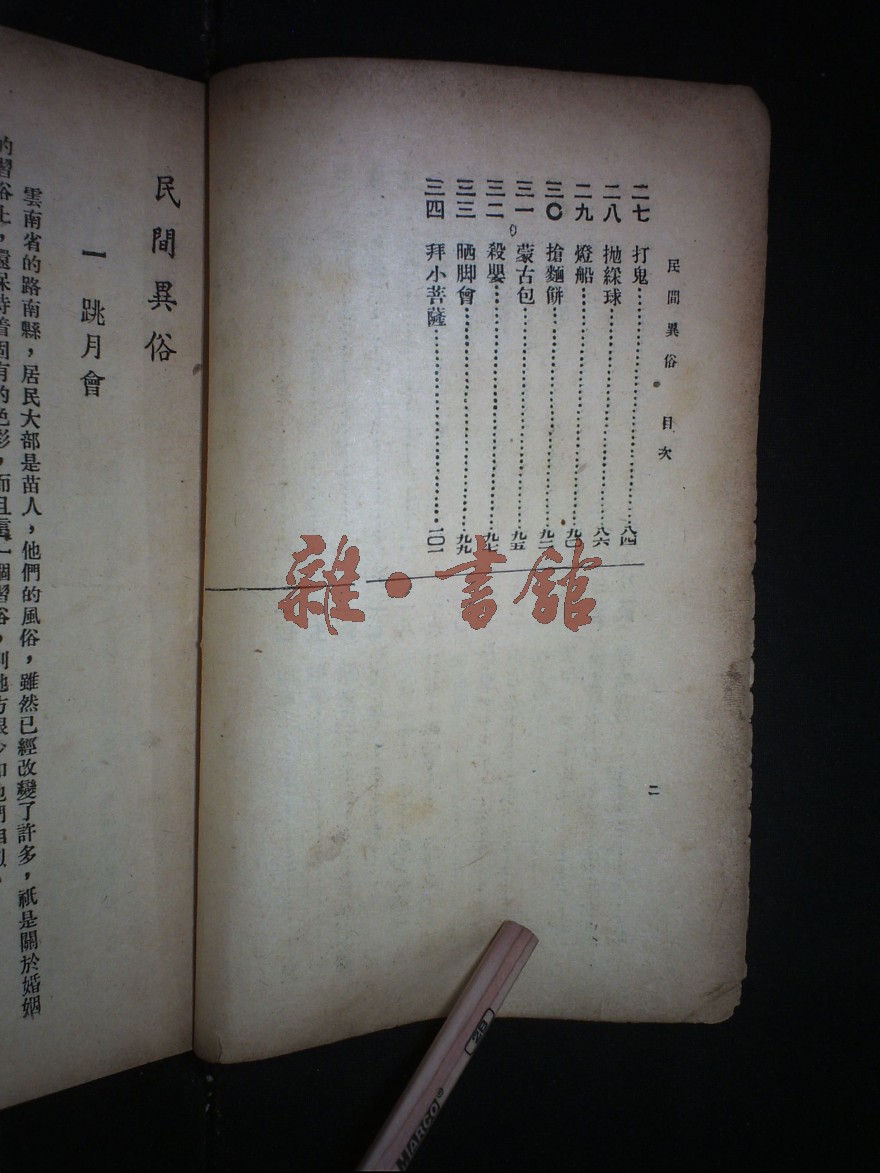 民間異俗 目次
二七 打鬼 八四
二八 抛綵球 八六
二九 燈船 九〇
三〇 搶麵餅 九二
三一 蒙古包 九五
三二 殺嬰 九七
三三 晒脚會 九九
三四 拜小菩薩 一〇一
二
民間異俗
一 跳月會
雲南省的路南縣，居民大部是苗人，他們的風俗，雖然已經改變了許多，祇是關於婚姻
的習俗上，還保持着固有的色彩，而且這一個習俗，別地方很少和他們相似。
雜·書館
MARCO® 2B